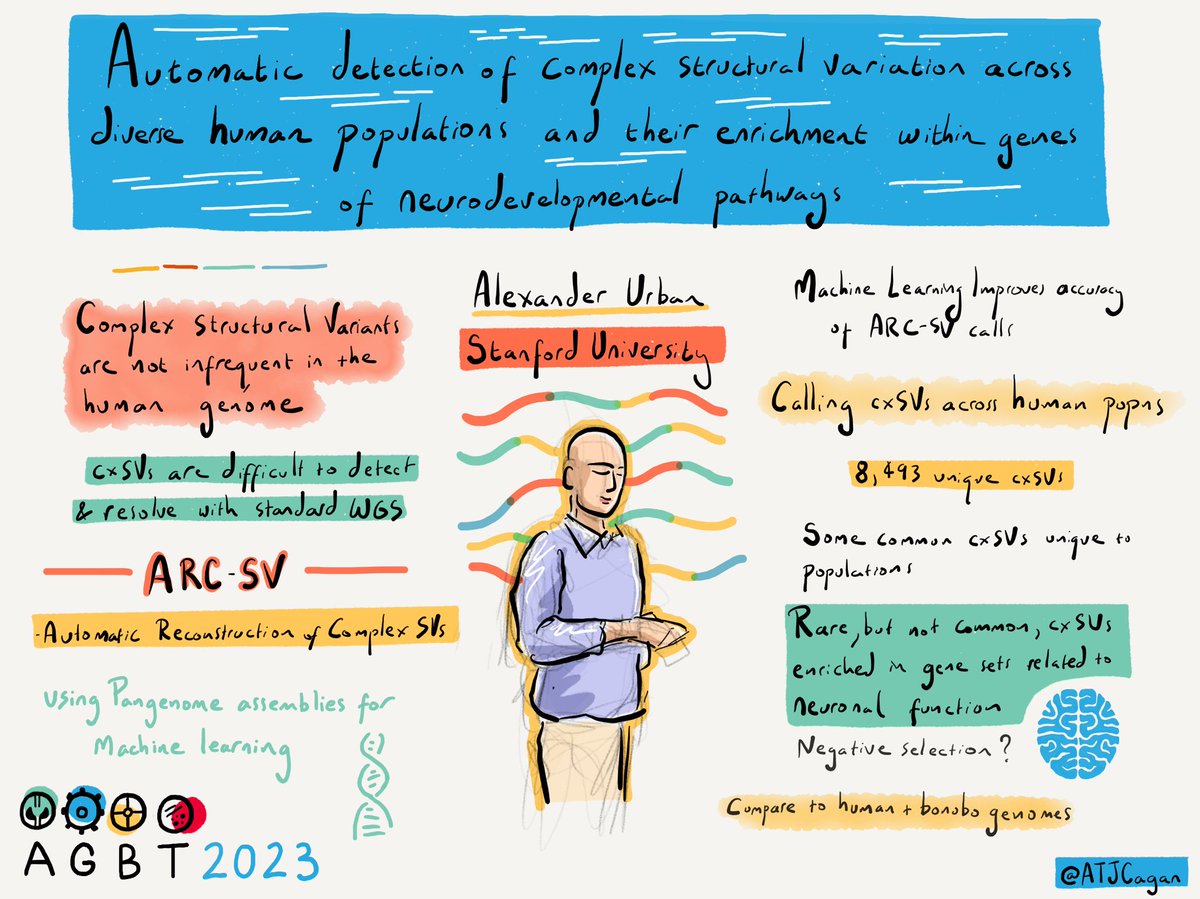 Automatic detection of complex structural variation across
diverse human populations and their enrichment within genes
of neurodevelopmental pathways
Complex Structural Variants
are not infrequent in the
human genome
cxSVs are difficult to detect
& resolve with standard WGS
ARC-SV
-Automatic Reconstruction of Complex SVs
using Pangenome assemblies for
Machine learning
AGBT 2023
Alexander Urban
Stanford University
Machine Learning Improves accuracy
of ARC-SV calls
Calling cxSVs across human popns
8,493 unique cxSVs
Some common cxSVs unique to
populations
Rare, but not common, cxSVs
enriched in gene sets related to
neuronal function
Negative selection?
Compare to human + bonobo genomes
@ATJCagan